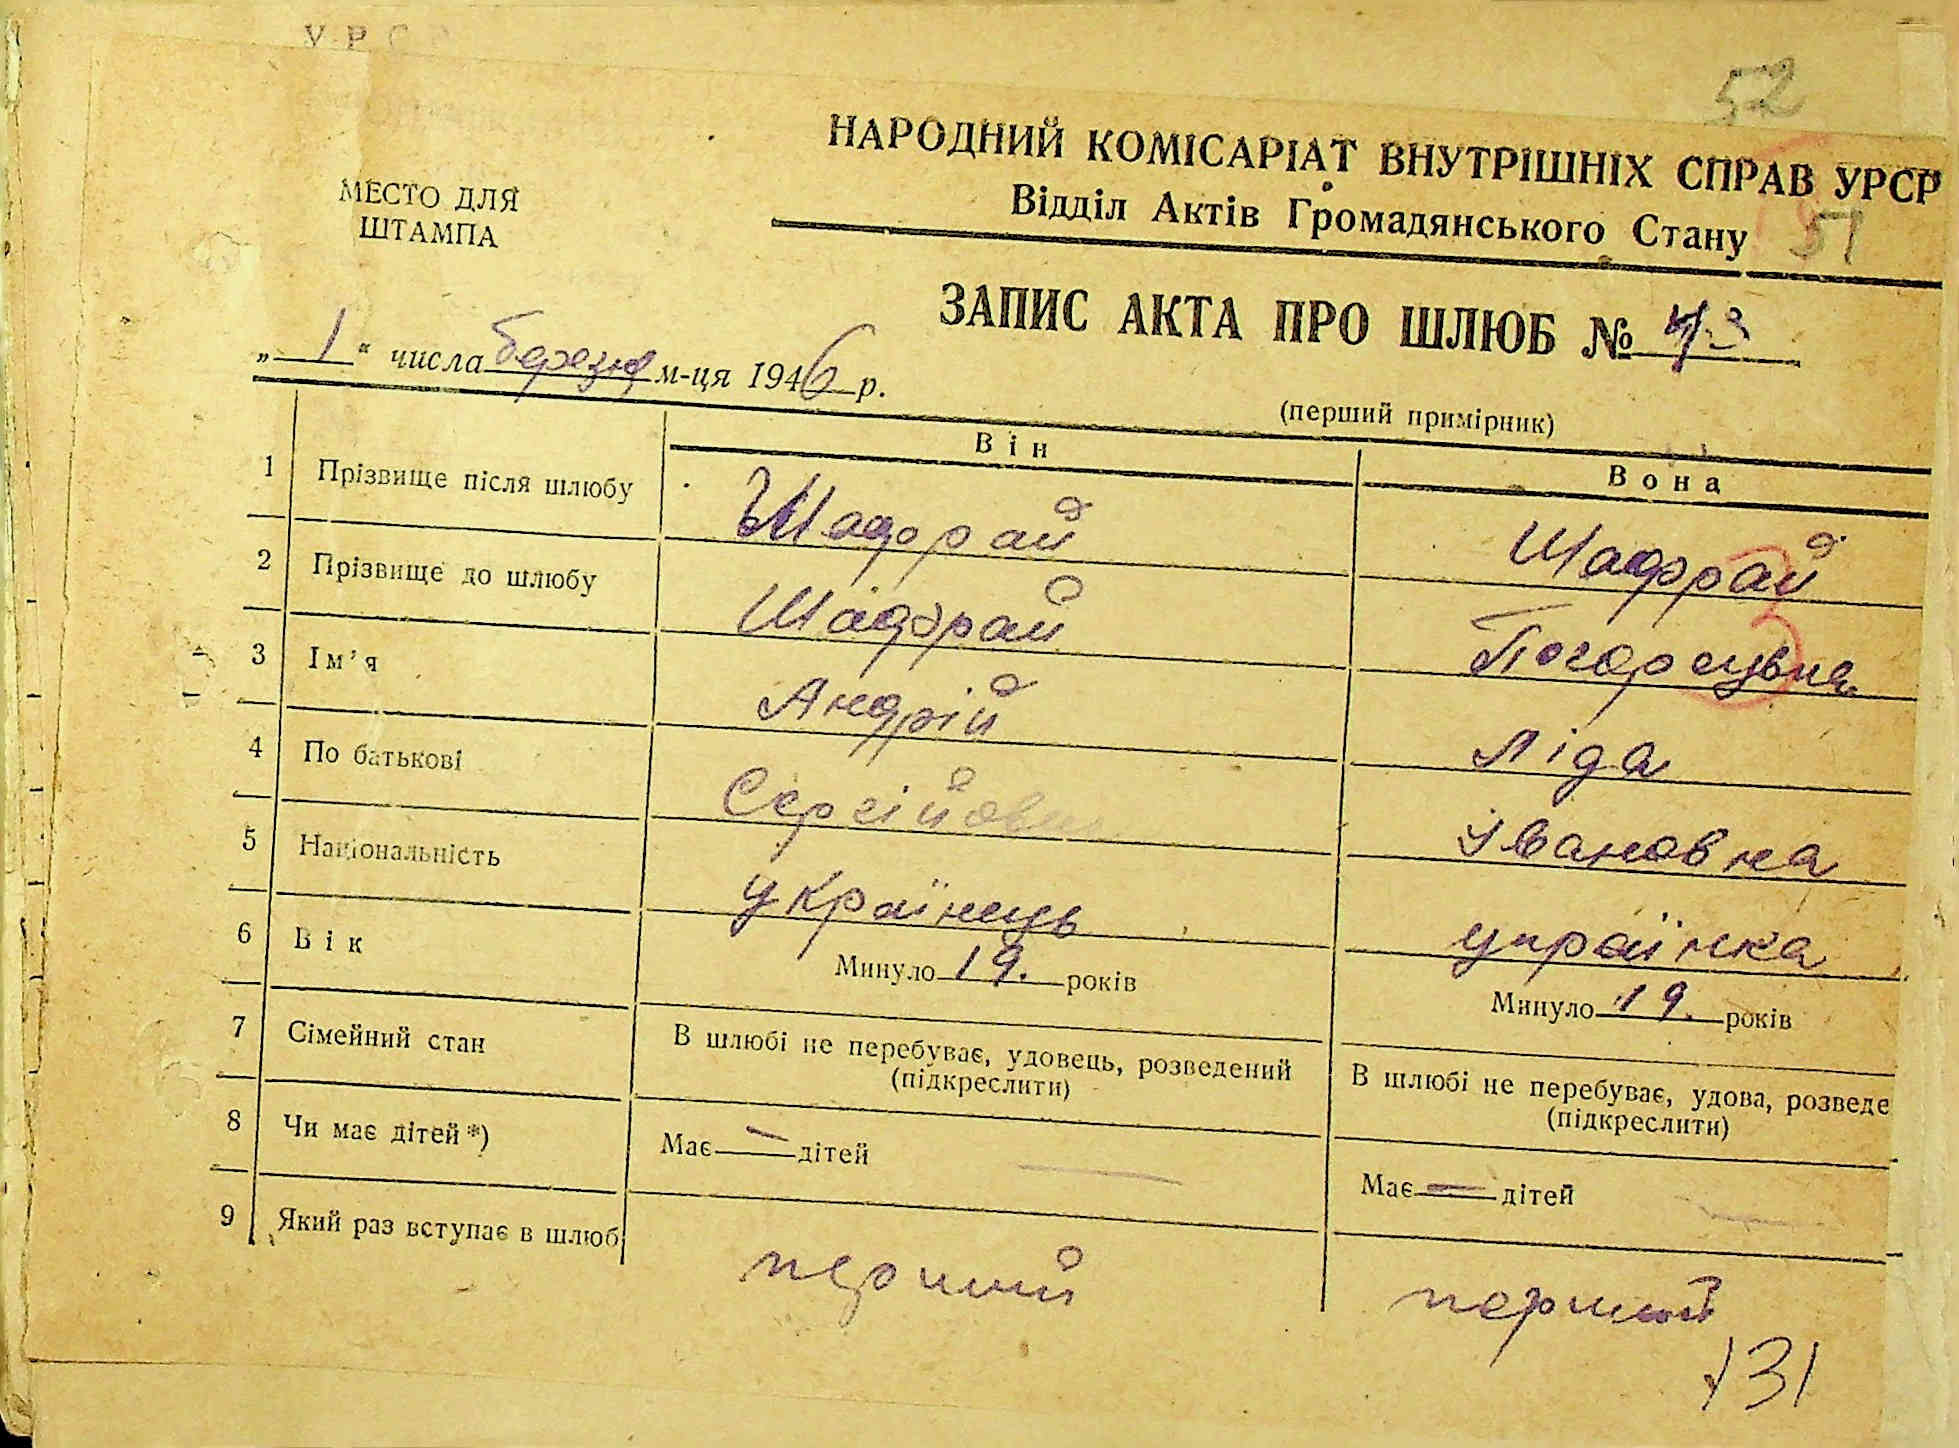 УРСР
52
НАРОДНИЙ КОМІСАРІАТ ВНУТРІШНІХ СПРАВ УРСР
Відділ Актів Громадянського Стану
51
МЕСТО ДЛЯ
ШТАМПА
ЗАПИС АКТА ПРО ШЛЮБ №
„ 1 “ числа березня м-ця 1946 р.
(перший примірник)
Він Вона
1 Прізвище після шлюбу Шафрай Шафрай
2 Прізвище до шлюбу Шафрай
3 Ім'я Андрій Ліда
4 По батькові Сергійович Івановна
5 Національність українець українка
6 Вік Минуло 19. років Минуло 19. років
7 Сімейний стан В шлюбі не перебуває, удовець, розведений В шлюбі не перебуває, удова, розведе
(підкреслити) (підкреслити)
8 Чи має дітей*) Має — дітей Має — дітей
9 Який раз вступає в шлюб перший перший
131